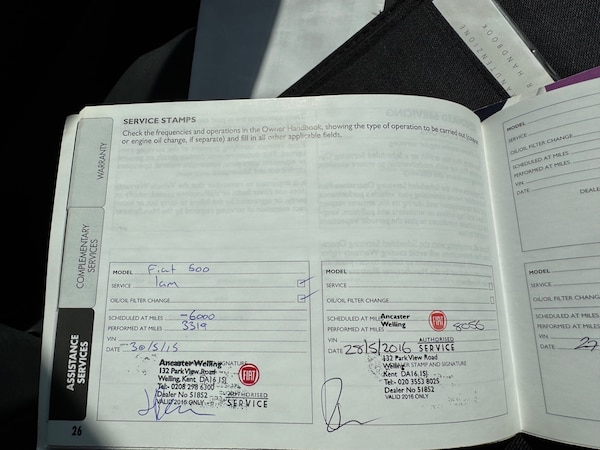 HANDBOOK
SERVICE STAMPS
Check the frequencies and operations in the Owner Handbook, showing the type of operation to be carried out (coupon
or engine oil change, if separate) and fill in all other applicable fields.
WARRANTY
COMPLEMENTARY
SERVICES
ASSISTANCE
SERVICES
MODEL Fiat 500
SERVICE 1am
OIL/OIL FILTER CHANGE
SCHEDULED AT MILES -6000
PERFORMED AT MILES 3319
VIN
DATE 30/5/15
Ancaster Welling
SIGNATURE
132 Park View Road
Welling, Kent DA16 1SJ
Tel:- 0208 298 6300
Dealer No 51852
VALID 2016 ONLY
FIAT
AUTHORISED
SERVICE
MODEL
SERVICE
OIL/OIL FILTER CHANGE
SCHEDULED AT MILES
PERFORMED AT MILES 8056
Ancaster
Welling
FIAT
VIN
DATE 28/5/2016
AUTHORISED
SERVICE
132 Park View Road
Welling
STAMP AND SIGNATURE
Kent DA16 1SJ
Tel:- 020 3553 8025
Dealer No 51852
VALID 2016 ONLY
26
MODEL
SERVICE
OIL/OIL FILTER CHANGE
SCHEDULED AT MILES
VIN
DATE
DEALE
MODEL
SERVICE
OIL/OIL FILTER CHANG
SCHEDULED AT MILES
PERFORMED AT MILES
VIN
DATE 29